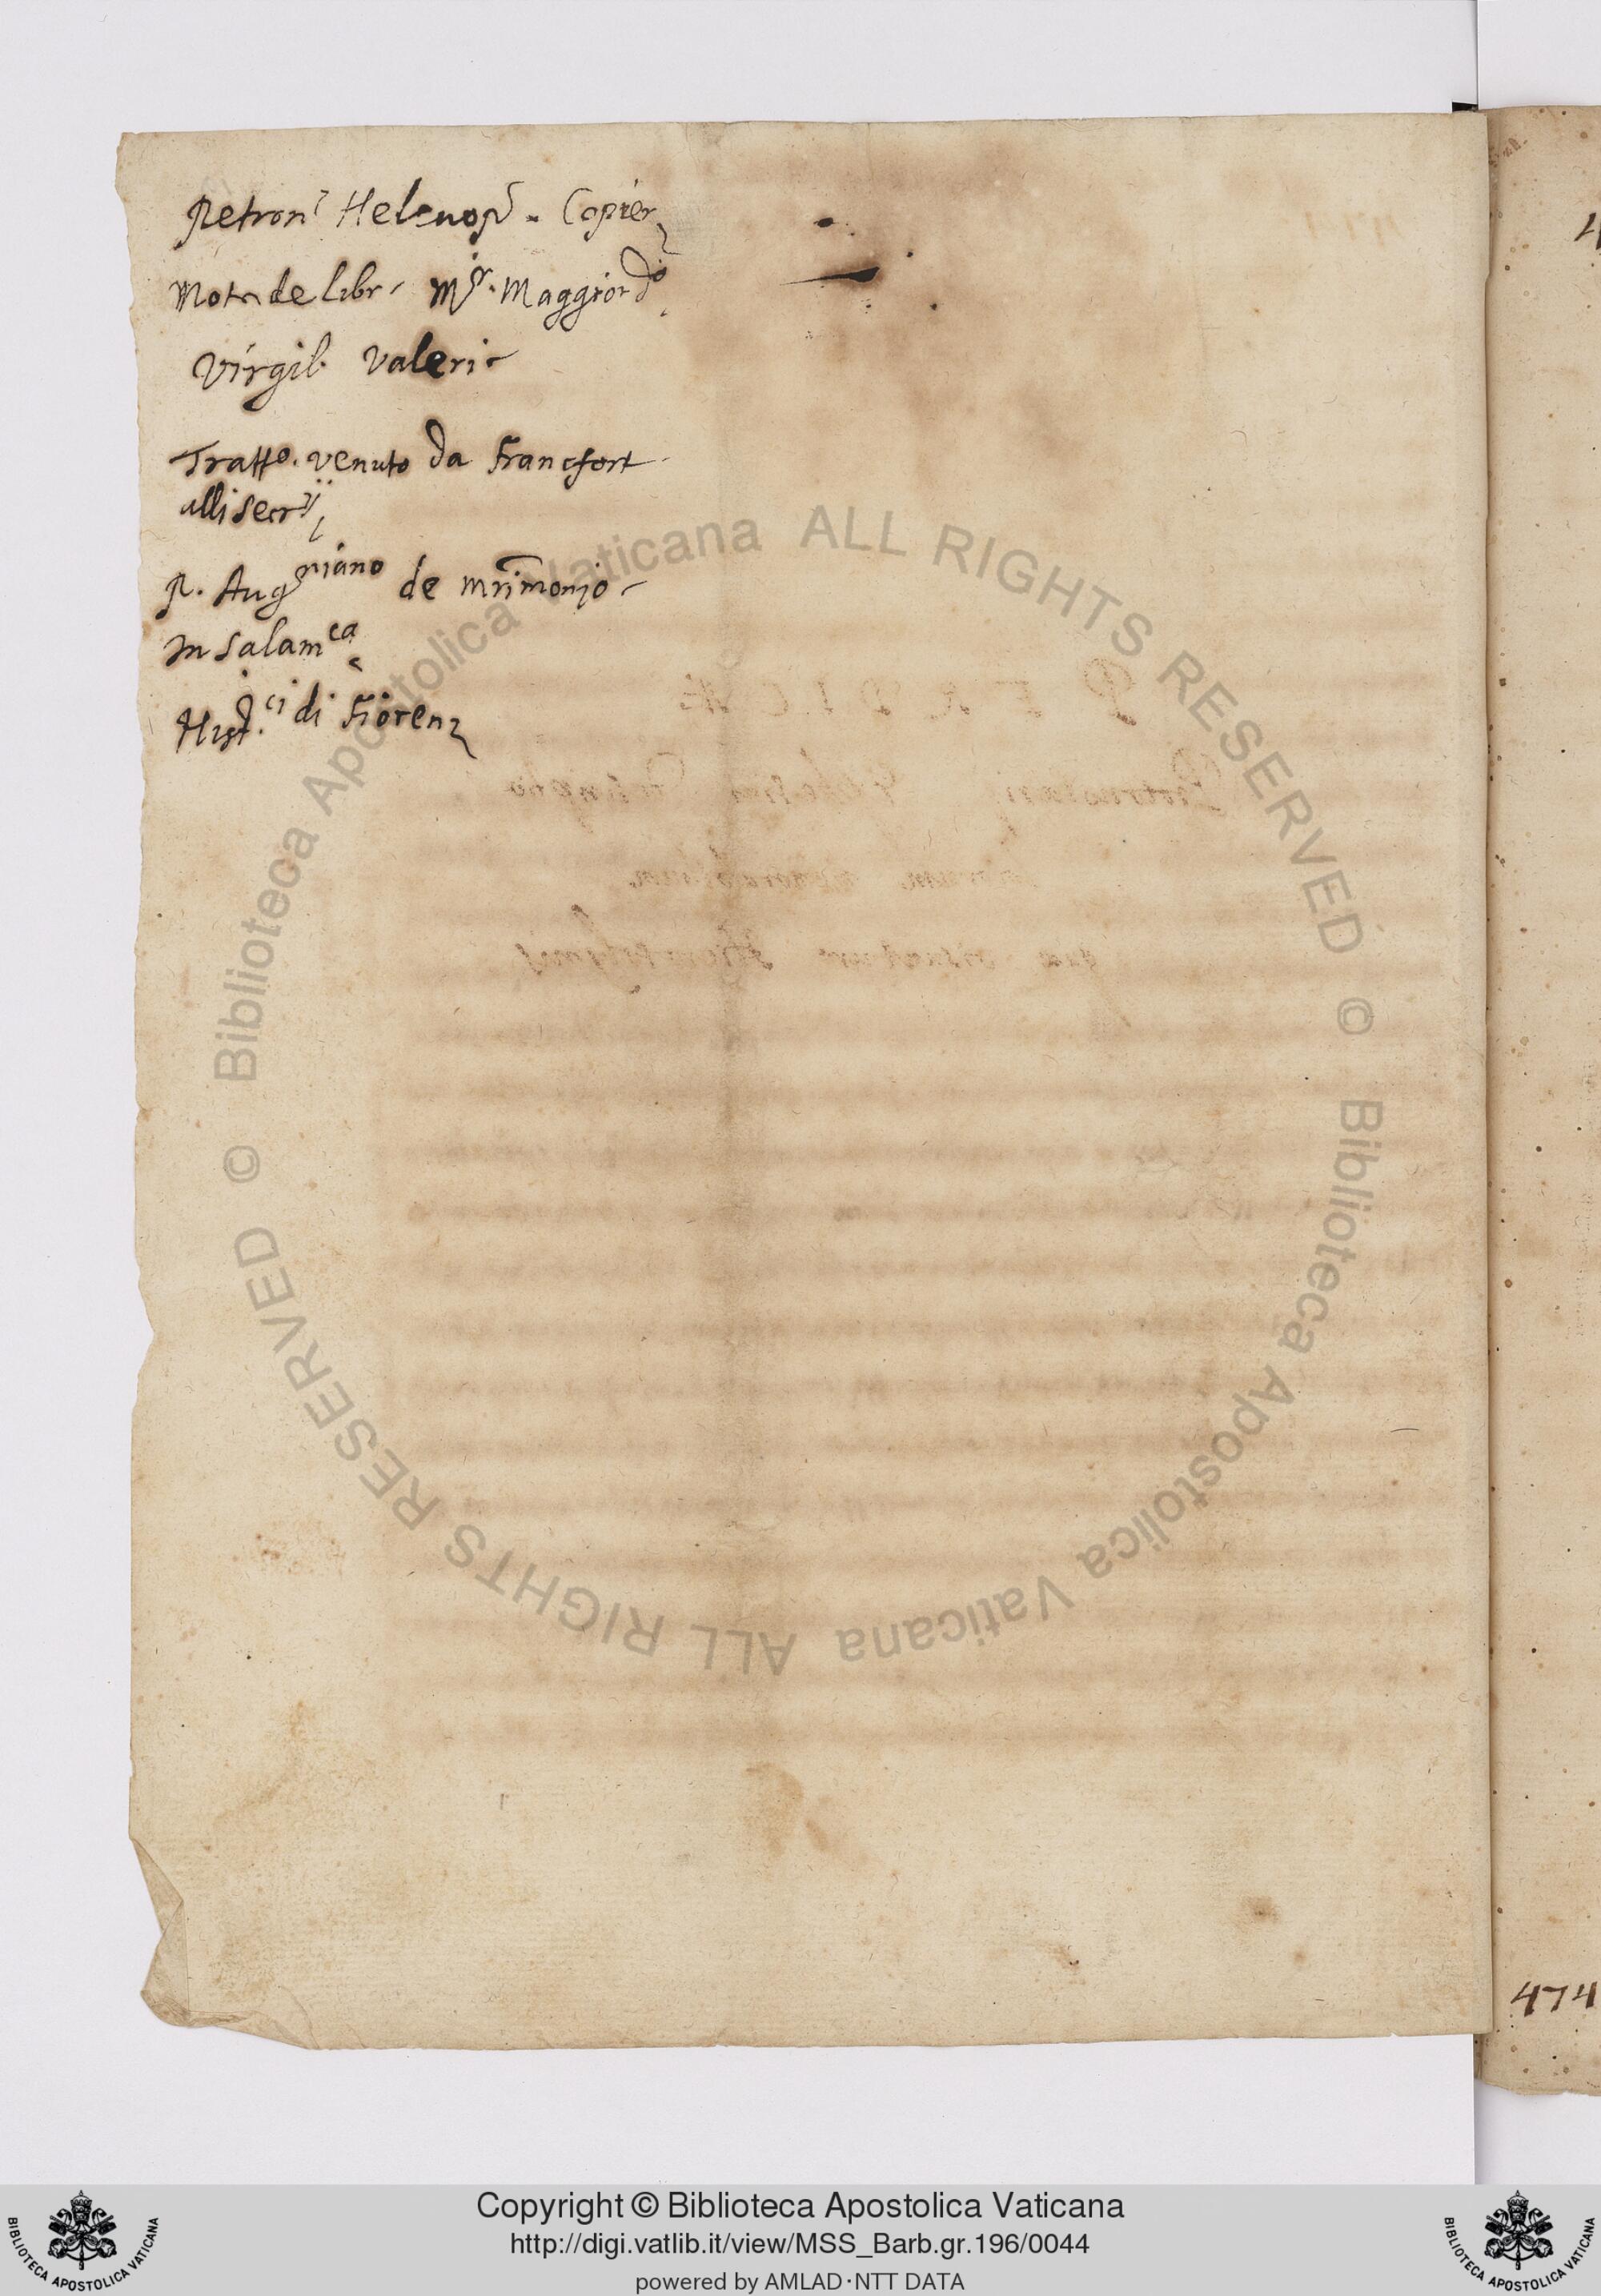 Petron Helenop. Copier
Nota de libr. Mr. Maggiordo
Virgil. Valeri
Tratto. venuto da Francfort
alli secrii
P. Augniano de mrimonio
In Salamca
Hist.ci di Fiorenz
P E R D I C Æ
quæ visuntur Hierosolymis
474
© Biblioteca Apostolica Vaticana ALL RIGHTS RESERVED © Biblioteca Apostolica Vaticana ALL RIGHTS RESERVED
Copyright © Biblioteca Apostolica Vaticana
http://digi.vatlib.it/view/MSS_Barb.gr.196/0044
powered by AMLAD·NTT DATA
BIBLIOTECA APOSTOLICA VATICANA
BIBLIOTECA APOSTOLICA VATICANA